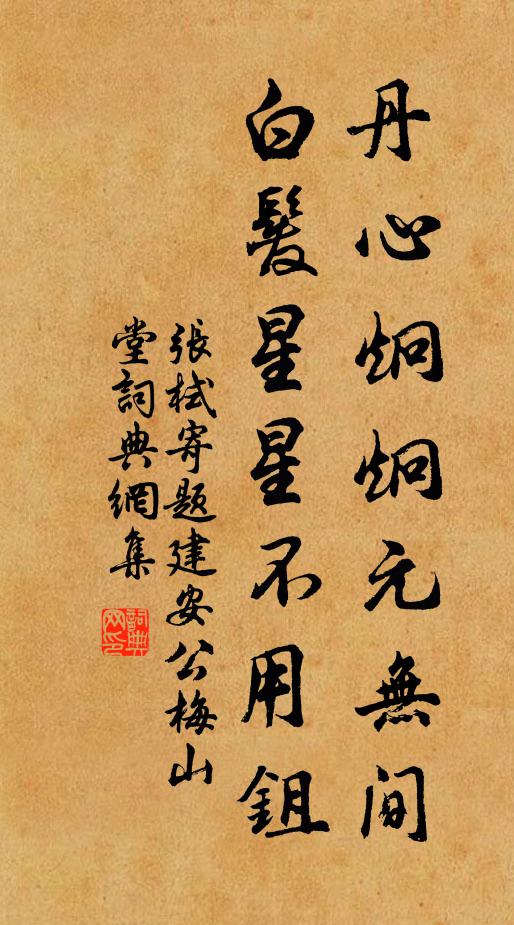 丹心炯炯元無间
白髮星星不用鉏
張栻寄題建安公梅山
堂詞典網集
詞典网印